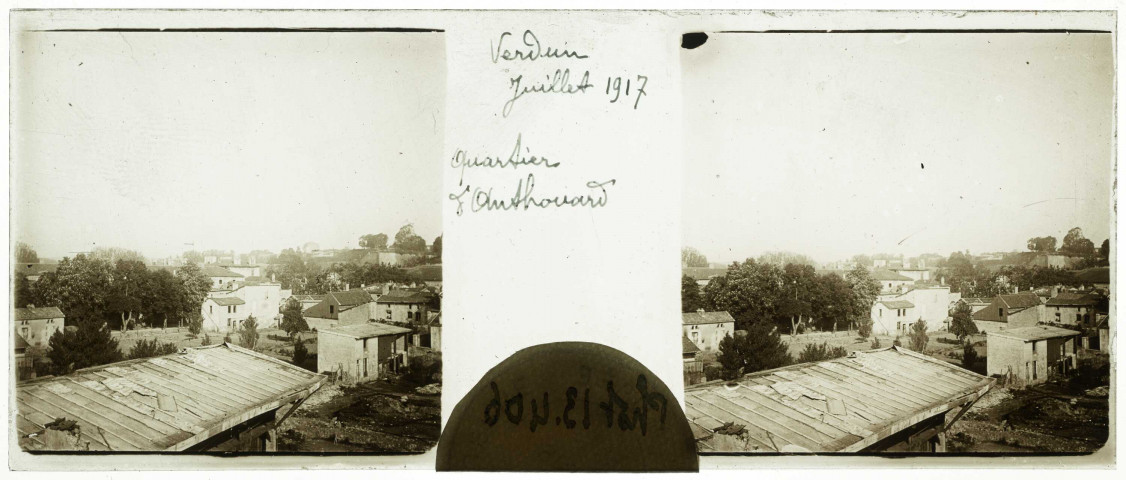 Verdun
Juillet 1917
Quartier
d'Anthouard
Phot 13.406